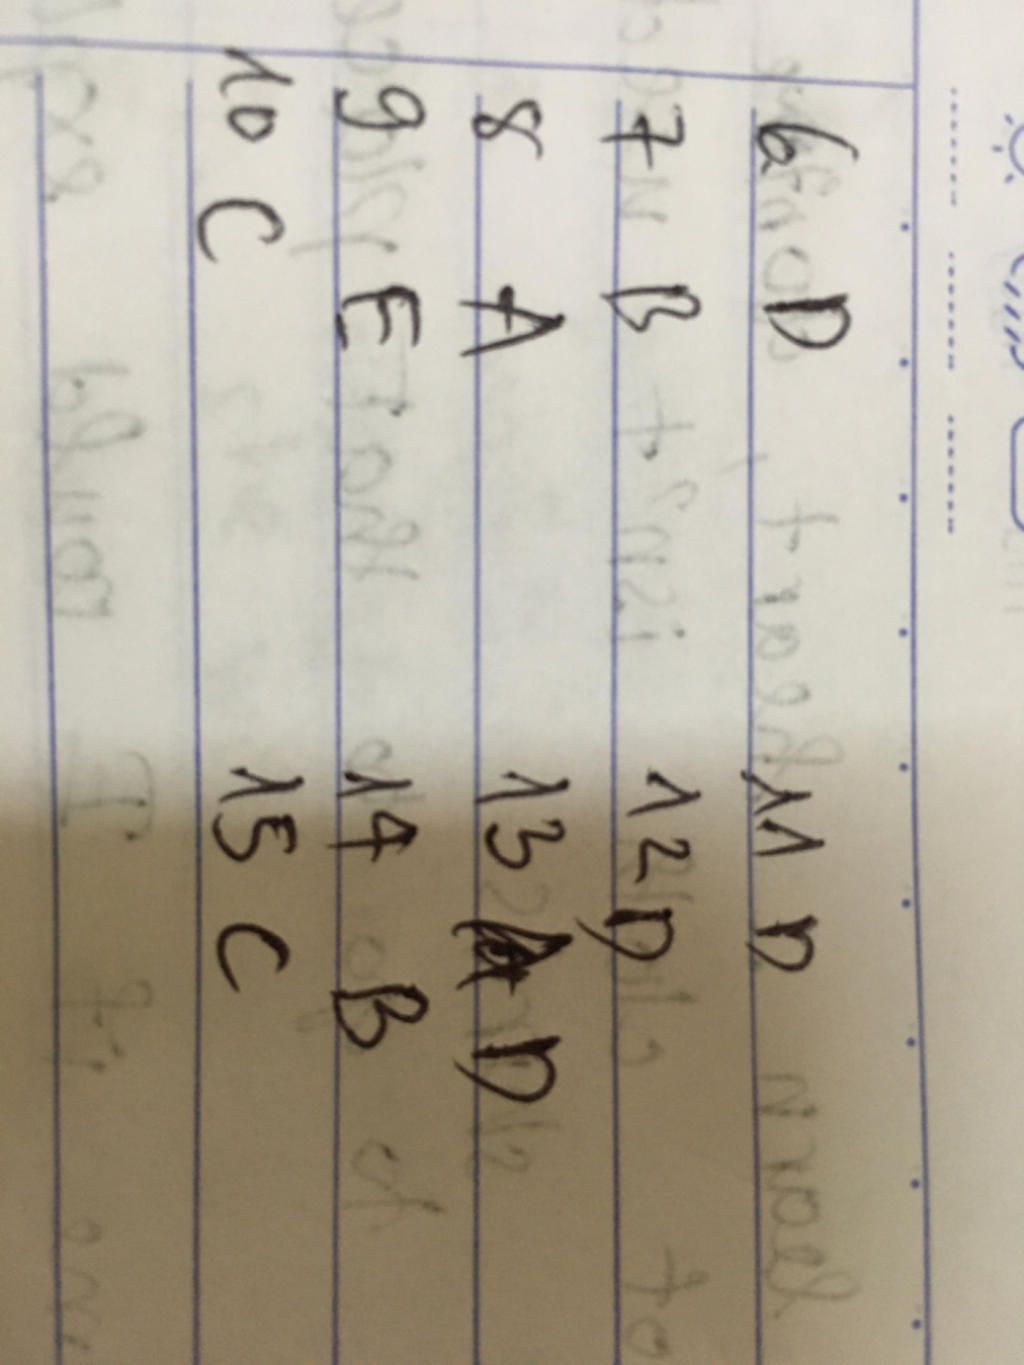 6 D 11 D
7 B 12 D
8 A 13 D
9 E 14 B
10 C 15 C